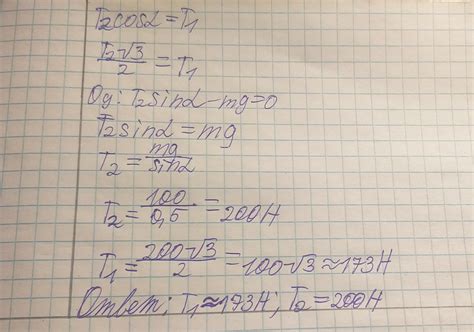 T₂cosα = T₁
T₂√3/2 = T₁
Oy: T₂sinα - mg = 0
T₂sinα = mg
T₂ = mg/sinα
T₂ = 100/0,5 = 200H
T₁ = 200√3/2 = 100√3 ≈ 173H
Ответ: T₁ ≈ 173H; T₂ = 200H